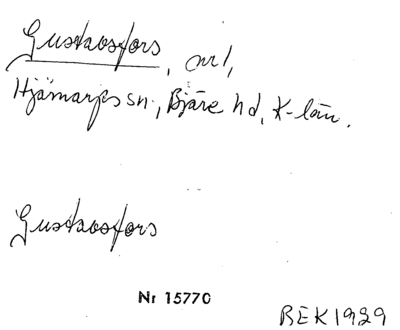 Gustavsfors, arl,
Hjärnarps sn., Bjäre hd, K-län.
Gustavsfors
Nr 15770
BEK1929